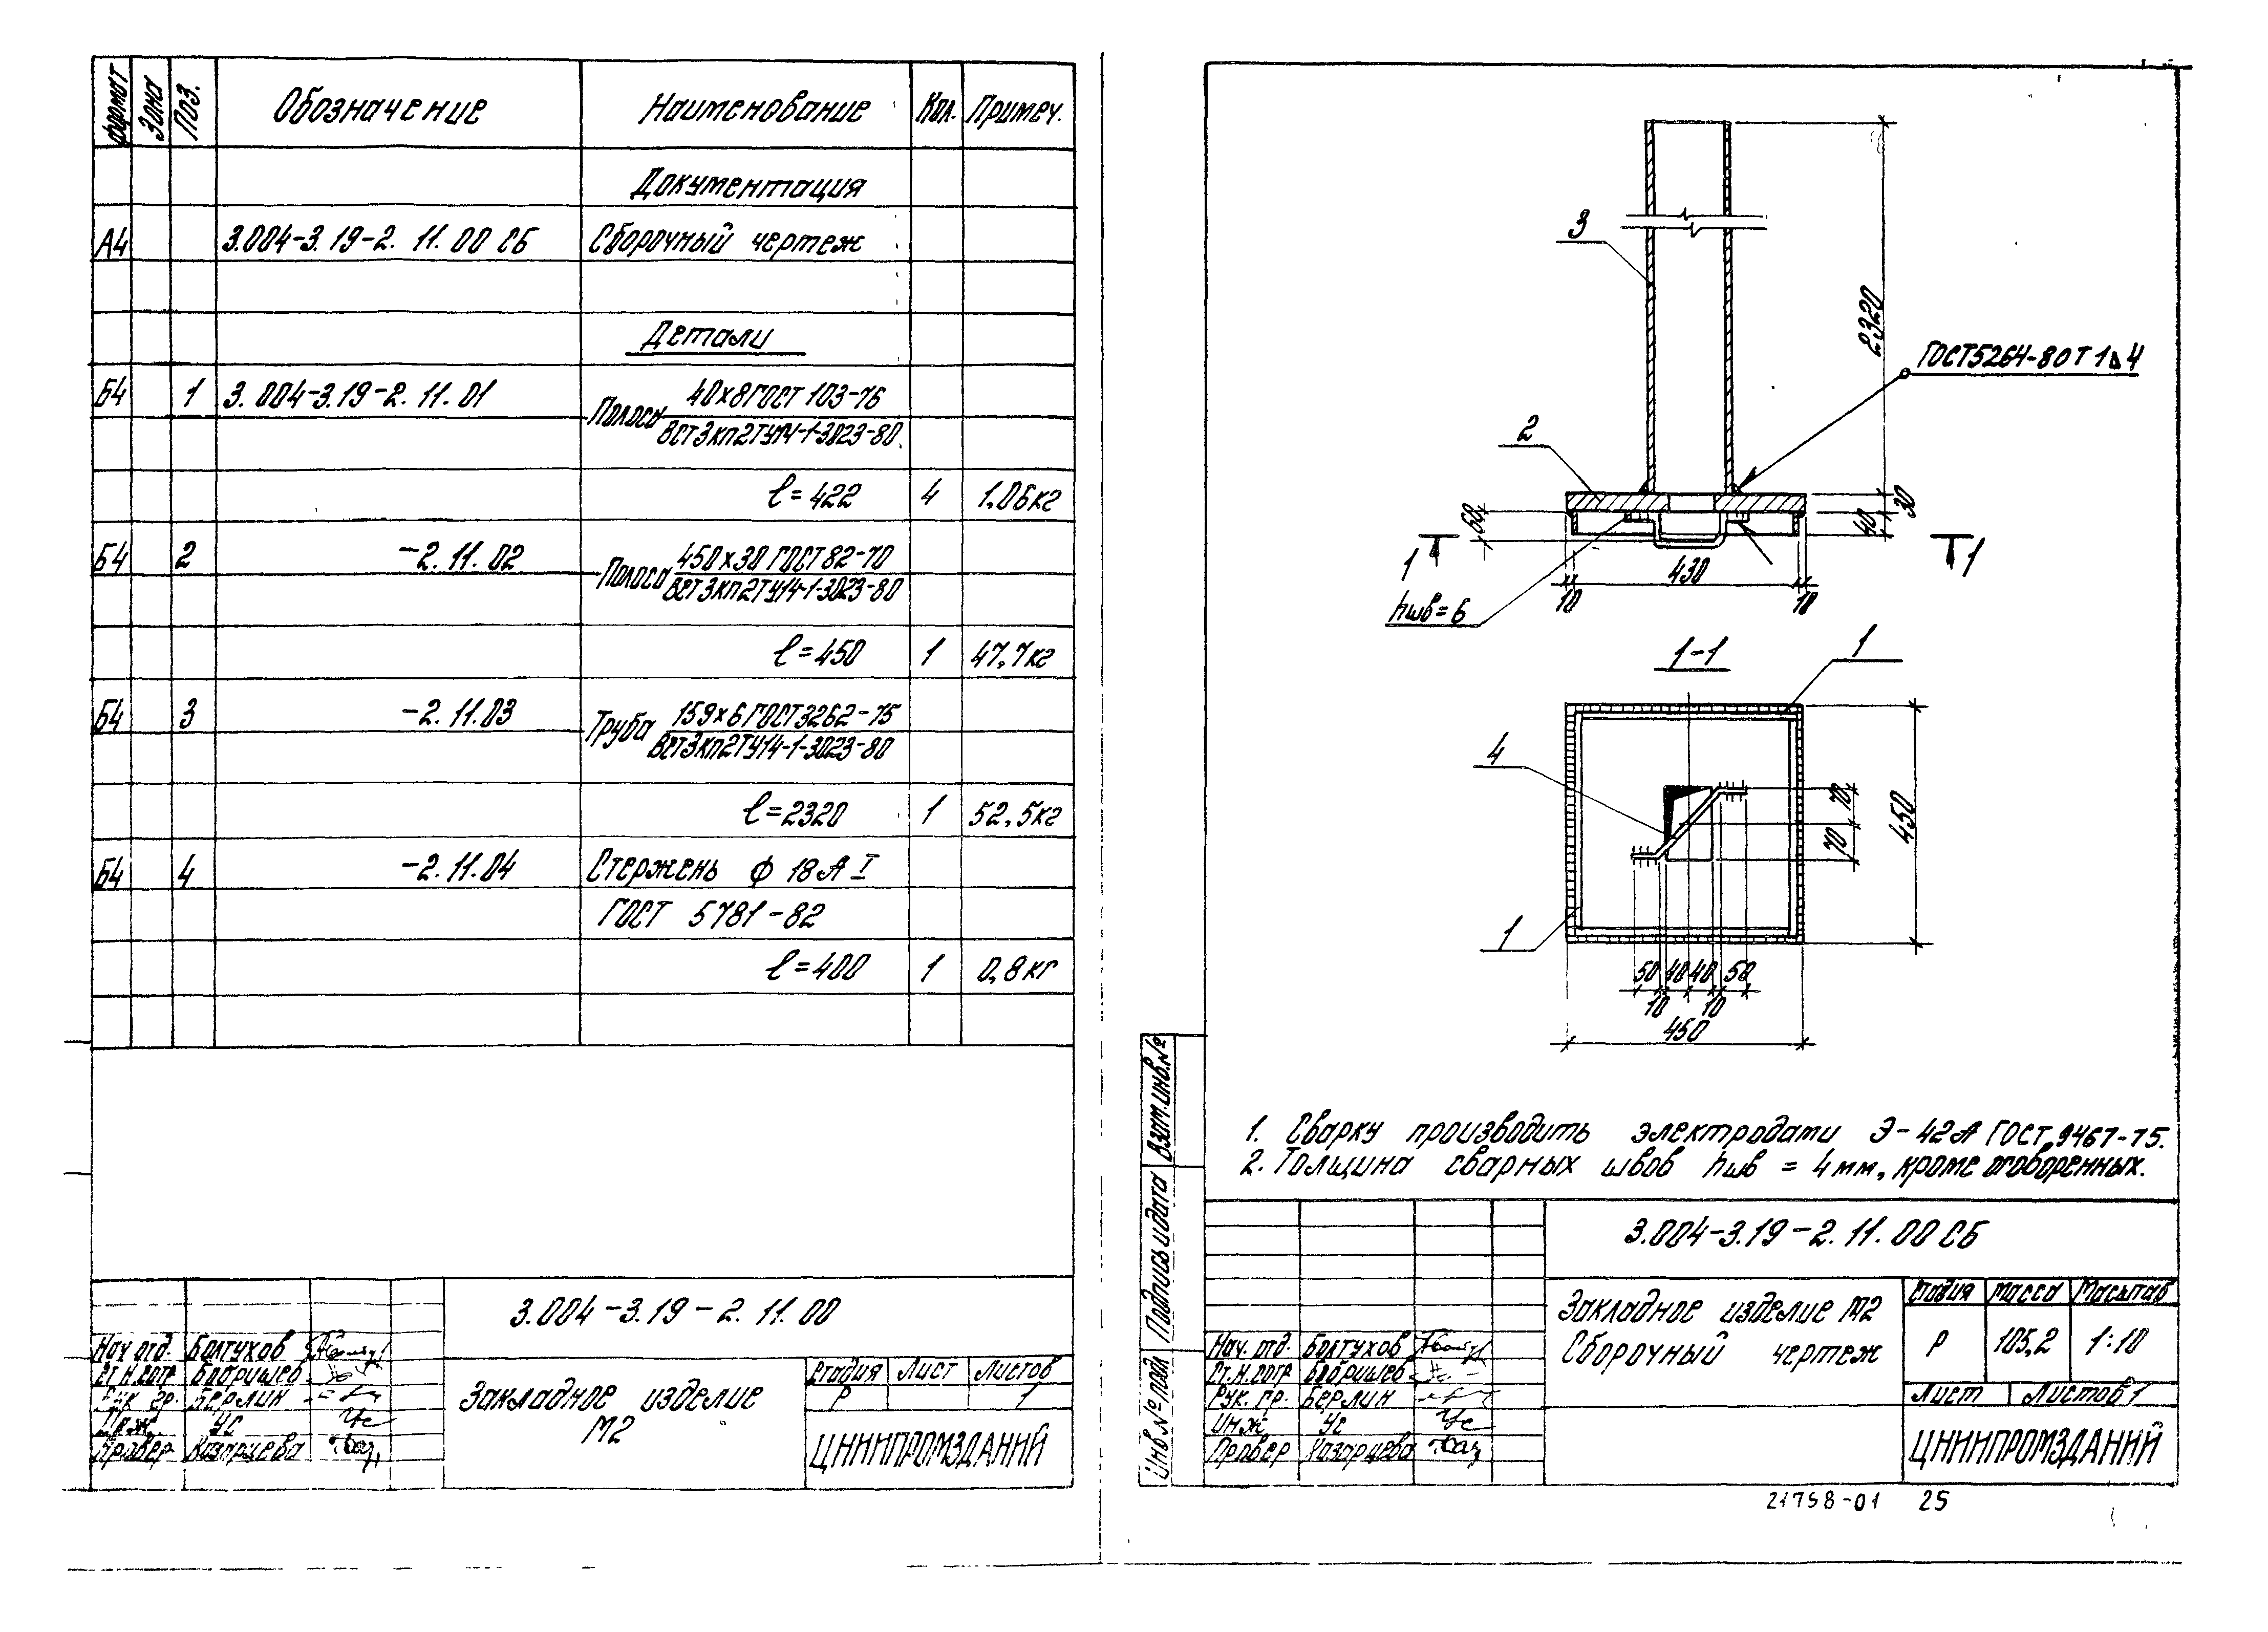 формат Зона Поз. Обозначение Наименование Кол. Примеч.
Документация
А4 3.004-3.19-2. 11. 00 СБ Сборочный чертеж
Детали
Б4 1 3.004-3.19-2. 11. 01 Полоса 40х8 ГОСТ 103-76
ВСт3кп2ТУ14-1-3023-80
ℓ=422 4 1.06кг
Б4 2 -2. 11. 02 Полоса 450х30 ГОСТ 82-70
ВСт3кп2ТУ14-1-3023-80
ℓ=450 1 47,7кг
Б4 3 -2. 11. 03 Труба 159х6 ГОСТ3262-75
ВСт3кп2ТУ14-1-3023-80
ℓ=2320 1 52,5кг
Б4 4 -2. 11. 04 Стержень ф 18 А I
ГОСТ 5781-82
ℓ=400 1 0,8кг
3.004-3.19-2. 11. 00
Нач. отд. Болтухов
Ст.н.сотр Бобришев
Рук. гр. Берлин
Инж. Ус
Провер Казарцева
Закладное изделие
М2
Стадия Лист Листов
Р 1
ЦНИИПРОМЗДАНИЙ
3
2320
ГОСТ5264-80 Т1 ⊿ 4
2
30
40
60
1 1
430
10 10
hшв=6
1-1
1
4
70
70
450
1
50 40 40 50
10 10
450
1. Сварку производить электродами Э-42А ГОСТ 9467-75.
2. Толщина сварных швов hшв = 4мм, кроме оговоренных.
Взам.инв.№
Подпись и дата
Инв.№ подл
3.004-3.19-2. 11. 00 СБ
Закладное изделие М2
Сборочный чертеж
Стадия Масса Масштаб
Р 105,2 1:10
Лист Листов 1
ЦНИИПРОМЗДАНИЙ
Нач. отд. Болтухов
Ст.н.сотр Бобришев
Рук. гр. Берлин
Инж. Ус
Провер Казарцева
21758-01 25